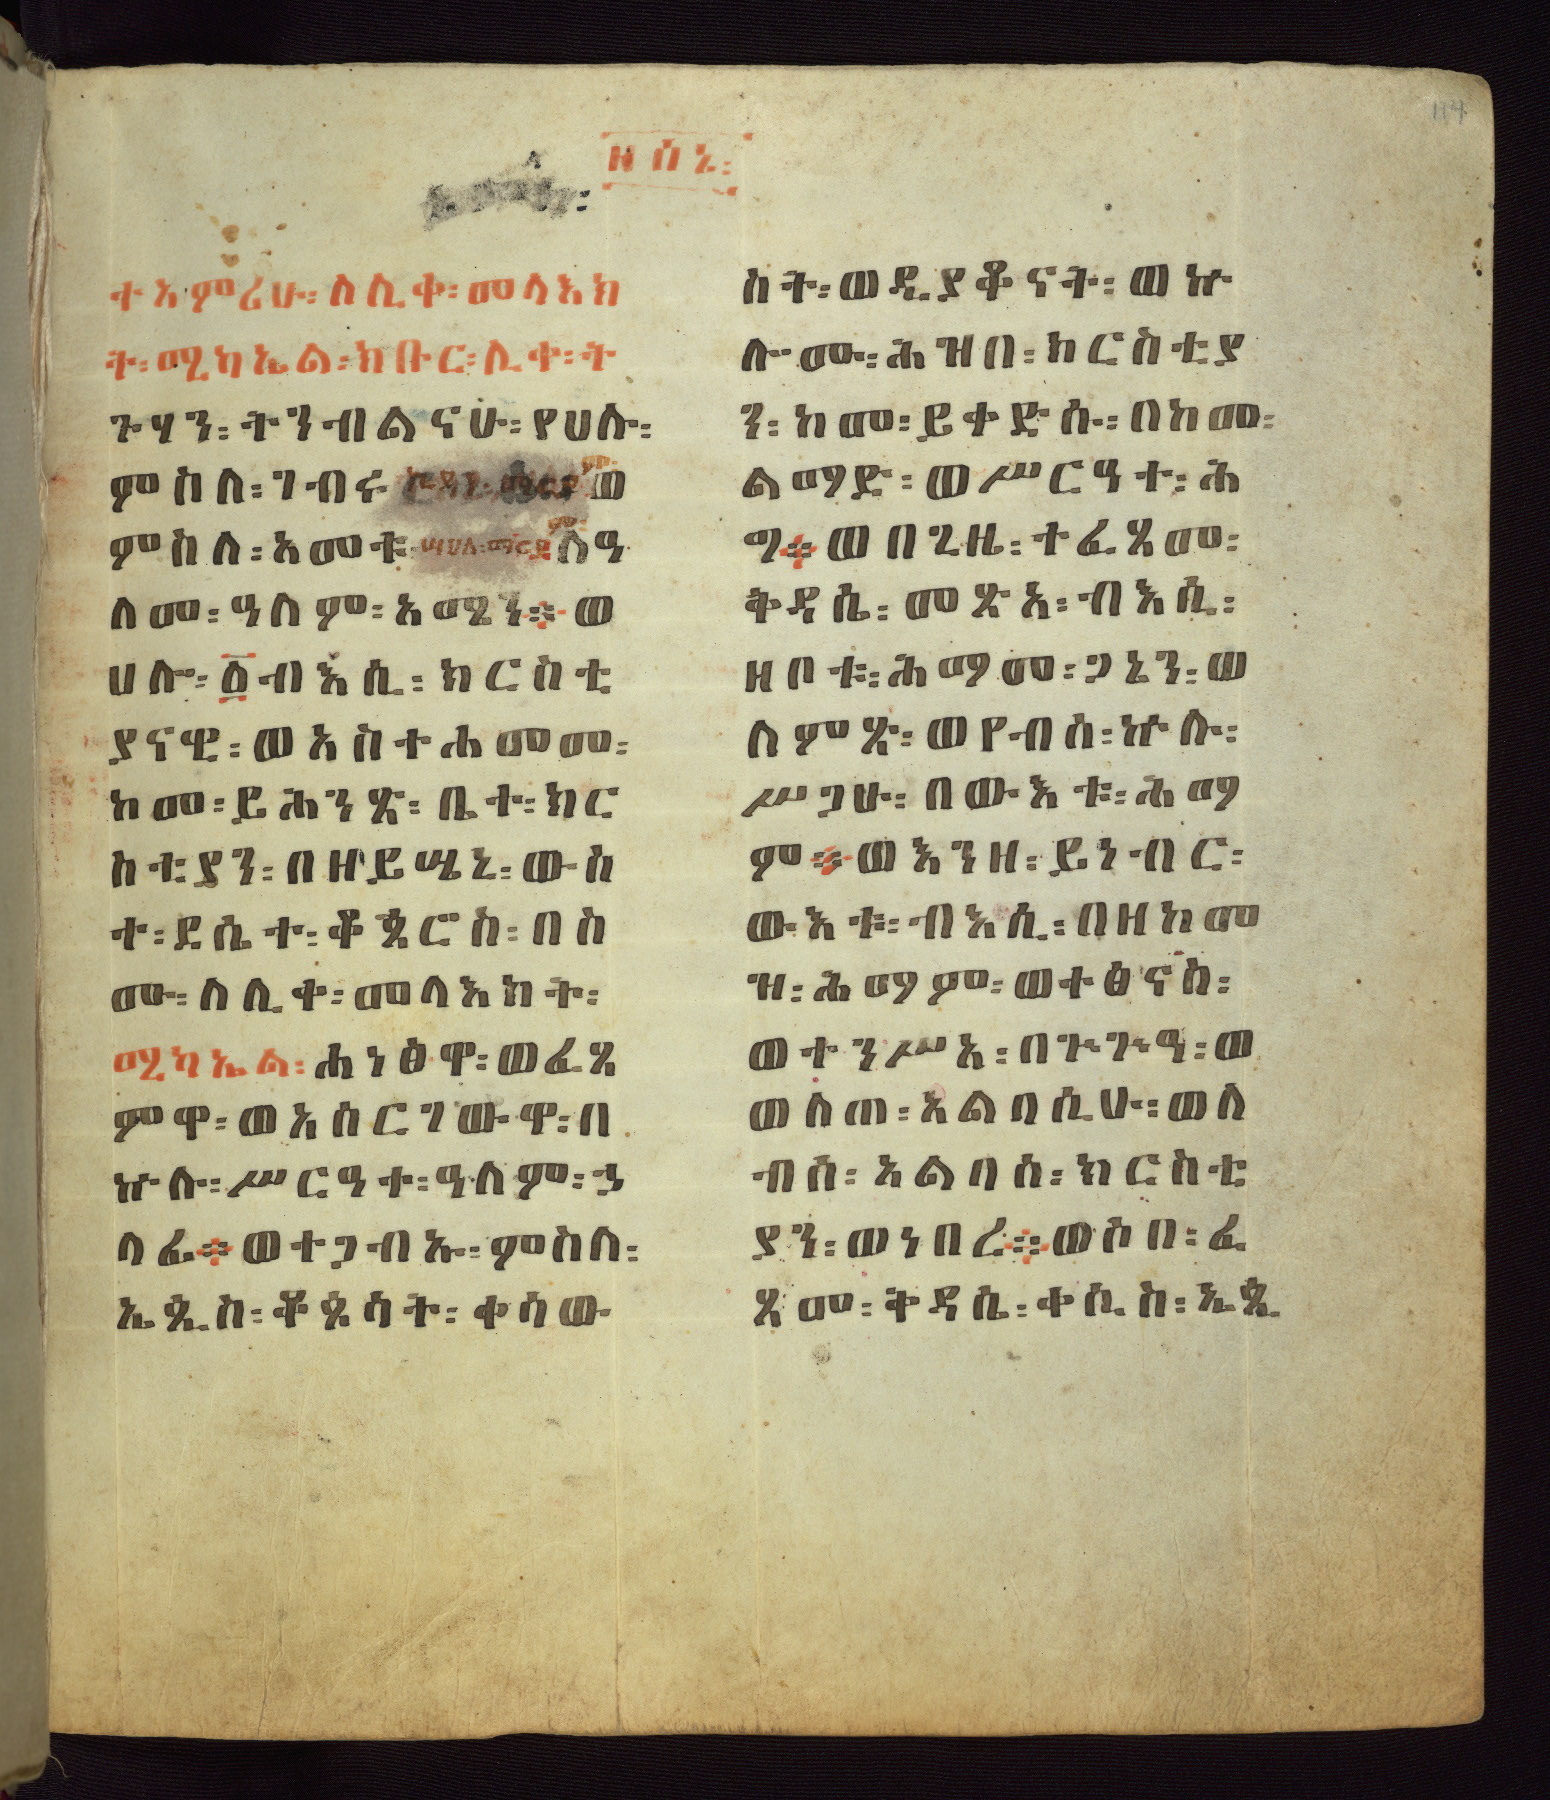 114
ዘሰኔ፡
ተአምሪሁ፡ለሊቀ፡መላእክ
ት፡ሚካኤል፡ክቡር፡ሊቀ፡ት
ጉሃን፡ትንብልናሁ፡የሀሉ፡
ምስለ፡ገብሩ ወ
ምስለ፡አመቱ፡ ለዓ
ለመ፡ዓለም፡አሜን፡፡ወ
ሀሎ፡፩ብእሲ፡ክርስቲ
ያናዊ፡ወአስተሐመመ፡
ከመ፡ይሕንጽ፡ቤተ፡ክር
ስቲያን፡በዘይሤኒ፡ውስ
ተ፡ደሴተ፡ቆጵሮስ፡በስ
ሙ፡ለሊቀ፡መላእክት፡
ሚካኤል፡ሐነፅዋ፡ወፈጸ
ምዋ፡ወአሰርገውዋ፡በ
ኵሉ፡ሥርዓተ፡ዓለም፡ኃ
ላፊ፡፡ወተጋብኡ፡ምስለ፡
ኤጲስ፡ቆጶሳት፡ቀሳው
ስት፡ወዲያቆናት፡ወኵ
ሎሙ፡ሕዝበ፡ክርስቲያ
ን፡ከመ፡ይቀድሱ፡በከመ፡
ልማድ፡ወሥርዓተ፡ሕ
ግ፡፡ወበጊዜ፡ተፈጸመ፡
ቅዳሴ፡መጽአ፡ብእሲ፡
ዘቦቱ፡ሕማመ፡ጋኔን፡ወ
ለምጽ፡ወየብሰ፡ኵሉ፡
ሥጋሁ፡በውእቱ፡ሕማ
ም፡፡ወእንዘ፡ይነብር፡
ውእቱ፡ብእሲ፡በዘከመ
ዝ፡ሕማም፡ወተፅናስ፡
ወተንሥአ፡በጕጕዓ፡ወ
ወለጠ፡አልባሲሁ፡ወለ
ብሰ፡አልባሰ፡ክርስቲ
ያን፡ወነበረ፡፡ወሶበ፡ፈ
ጸመ፡ቅዳሴ፡ቀሲስ፡ኤጲ